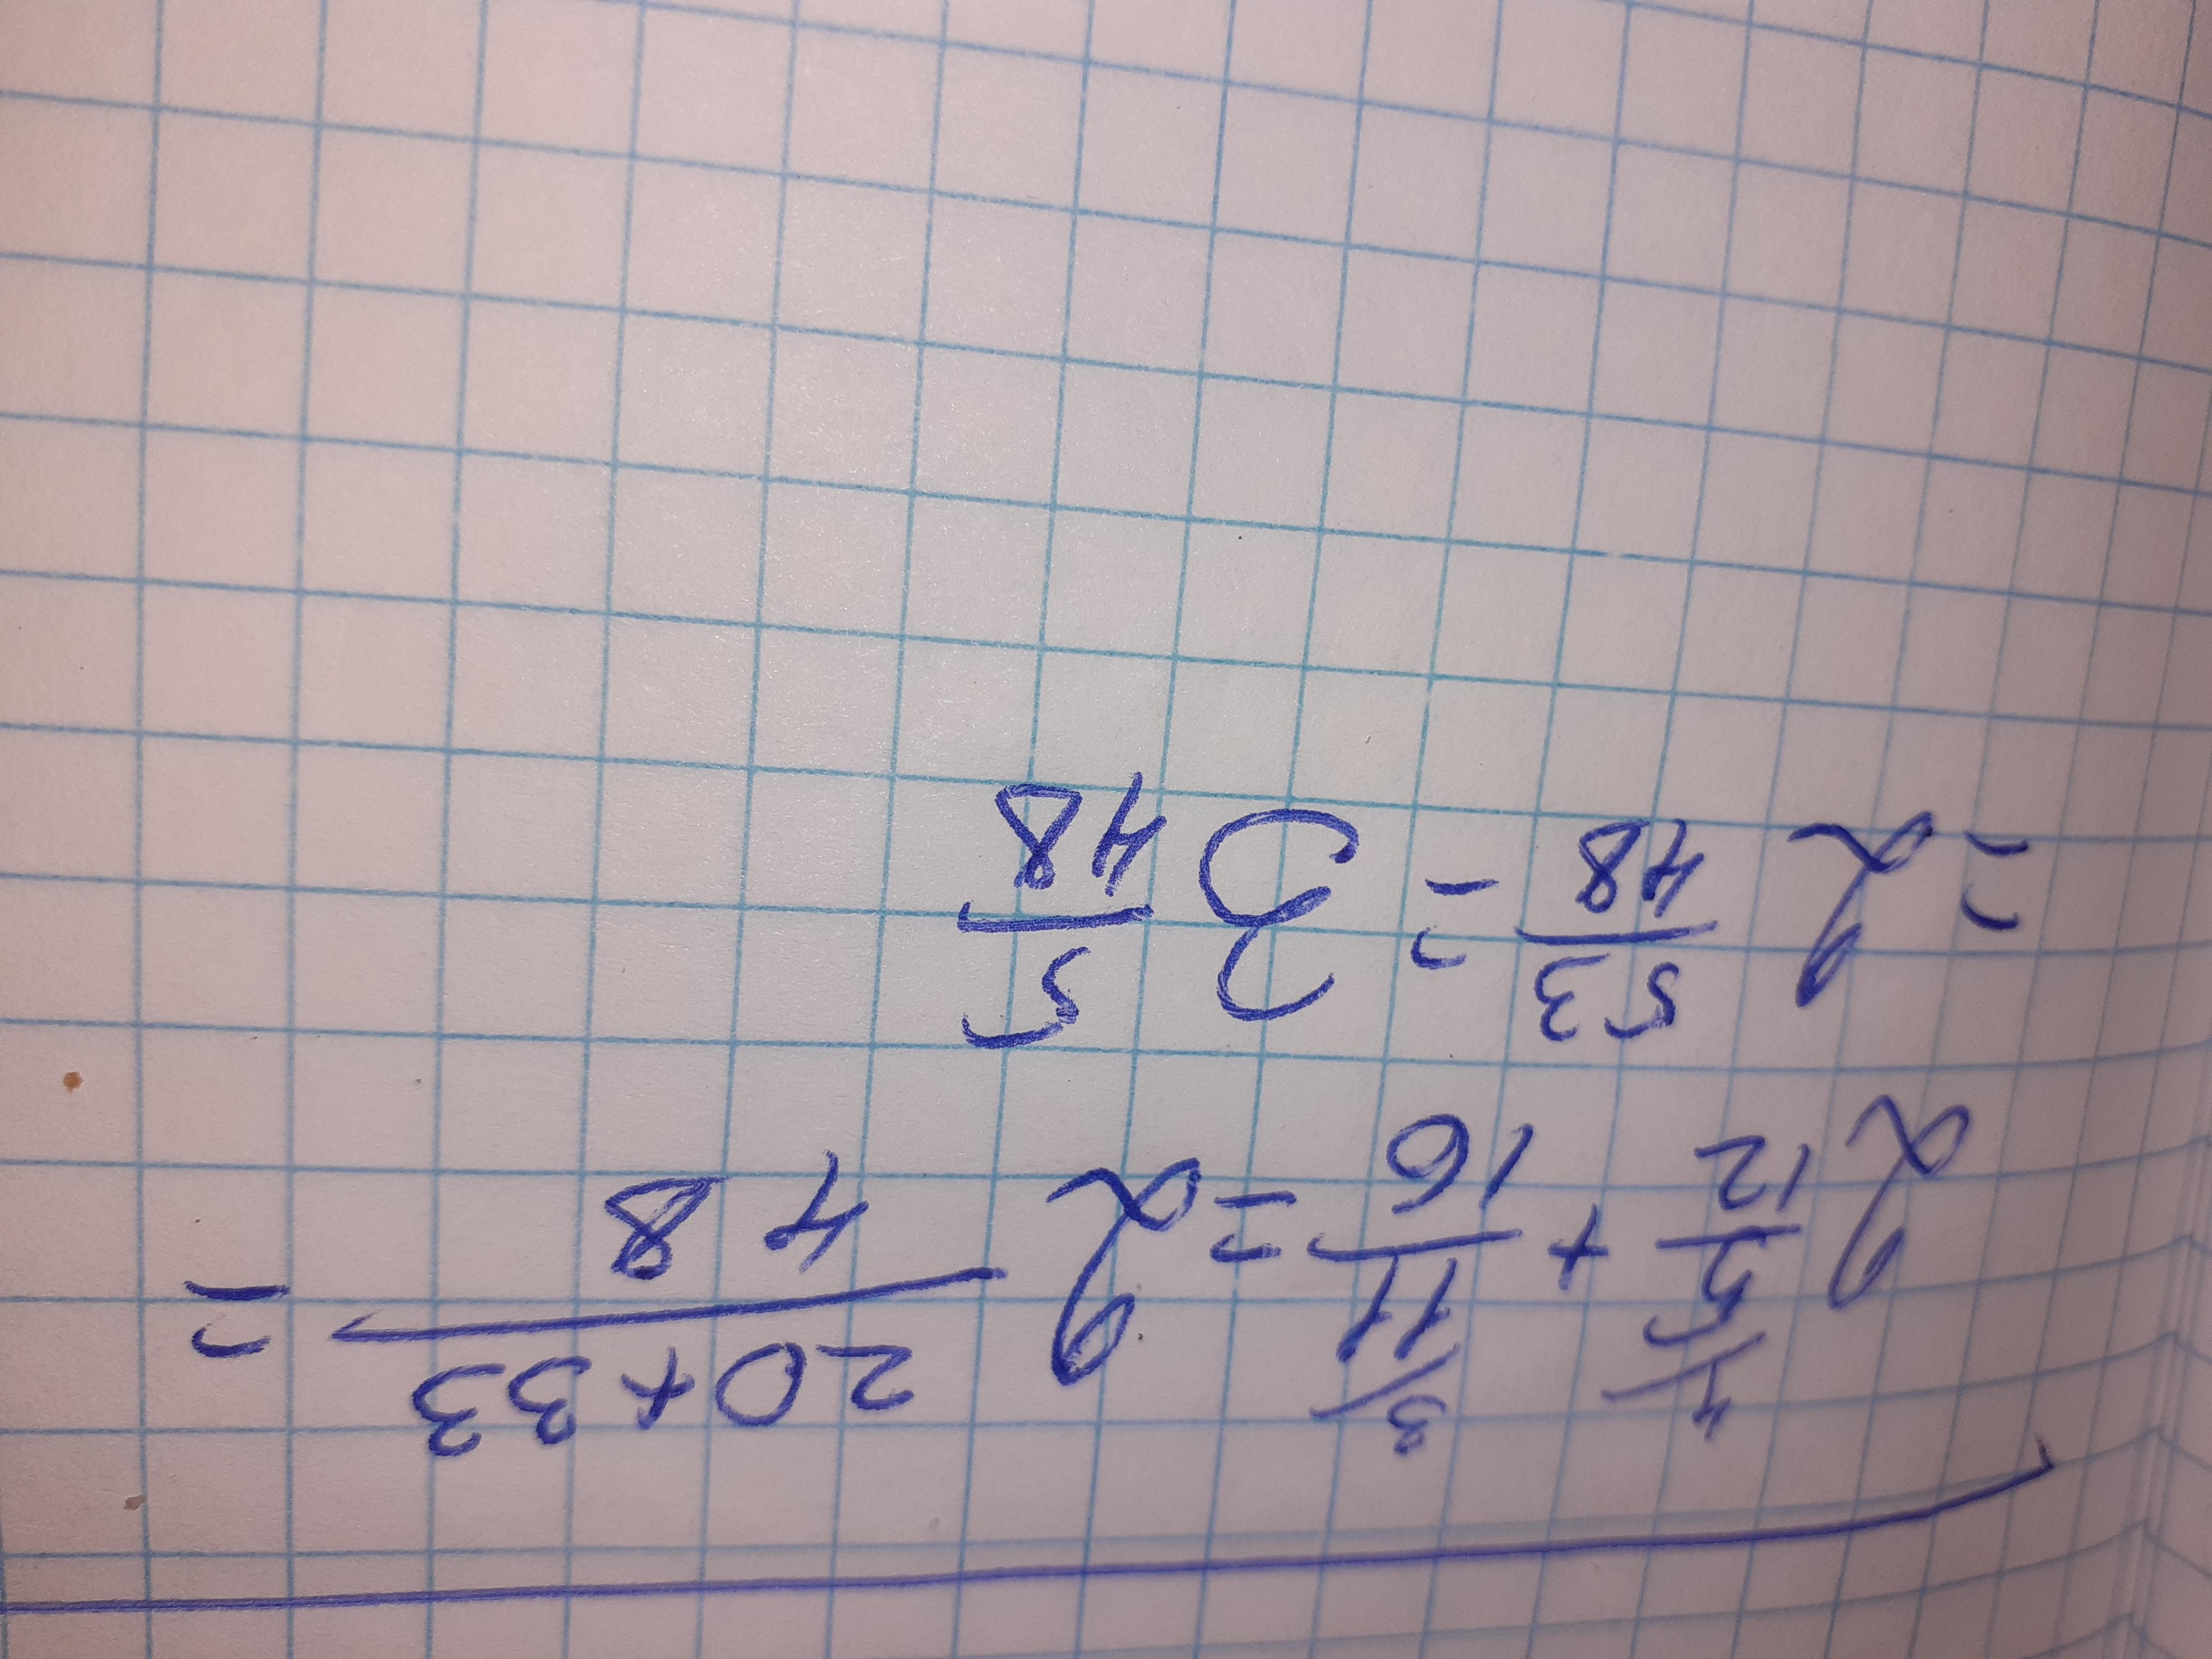 2 5/12 (4/ + 11/16 (3/ = 2 20+33/48 =
= 2 53/48 = 3 5/48